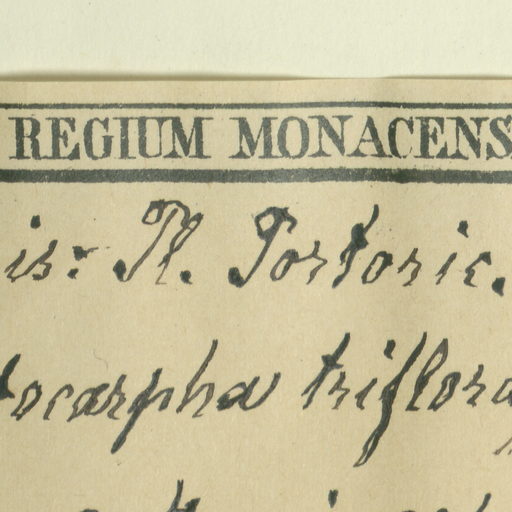 REGIUM MONACENS
is: Pl. Portoric.
tocarpha triflora